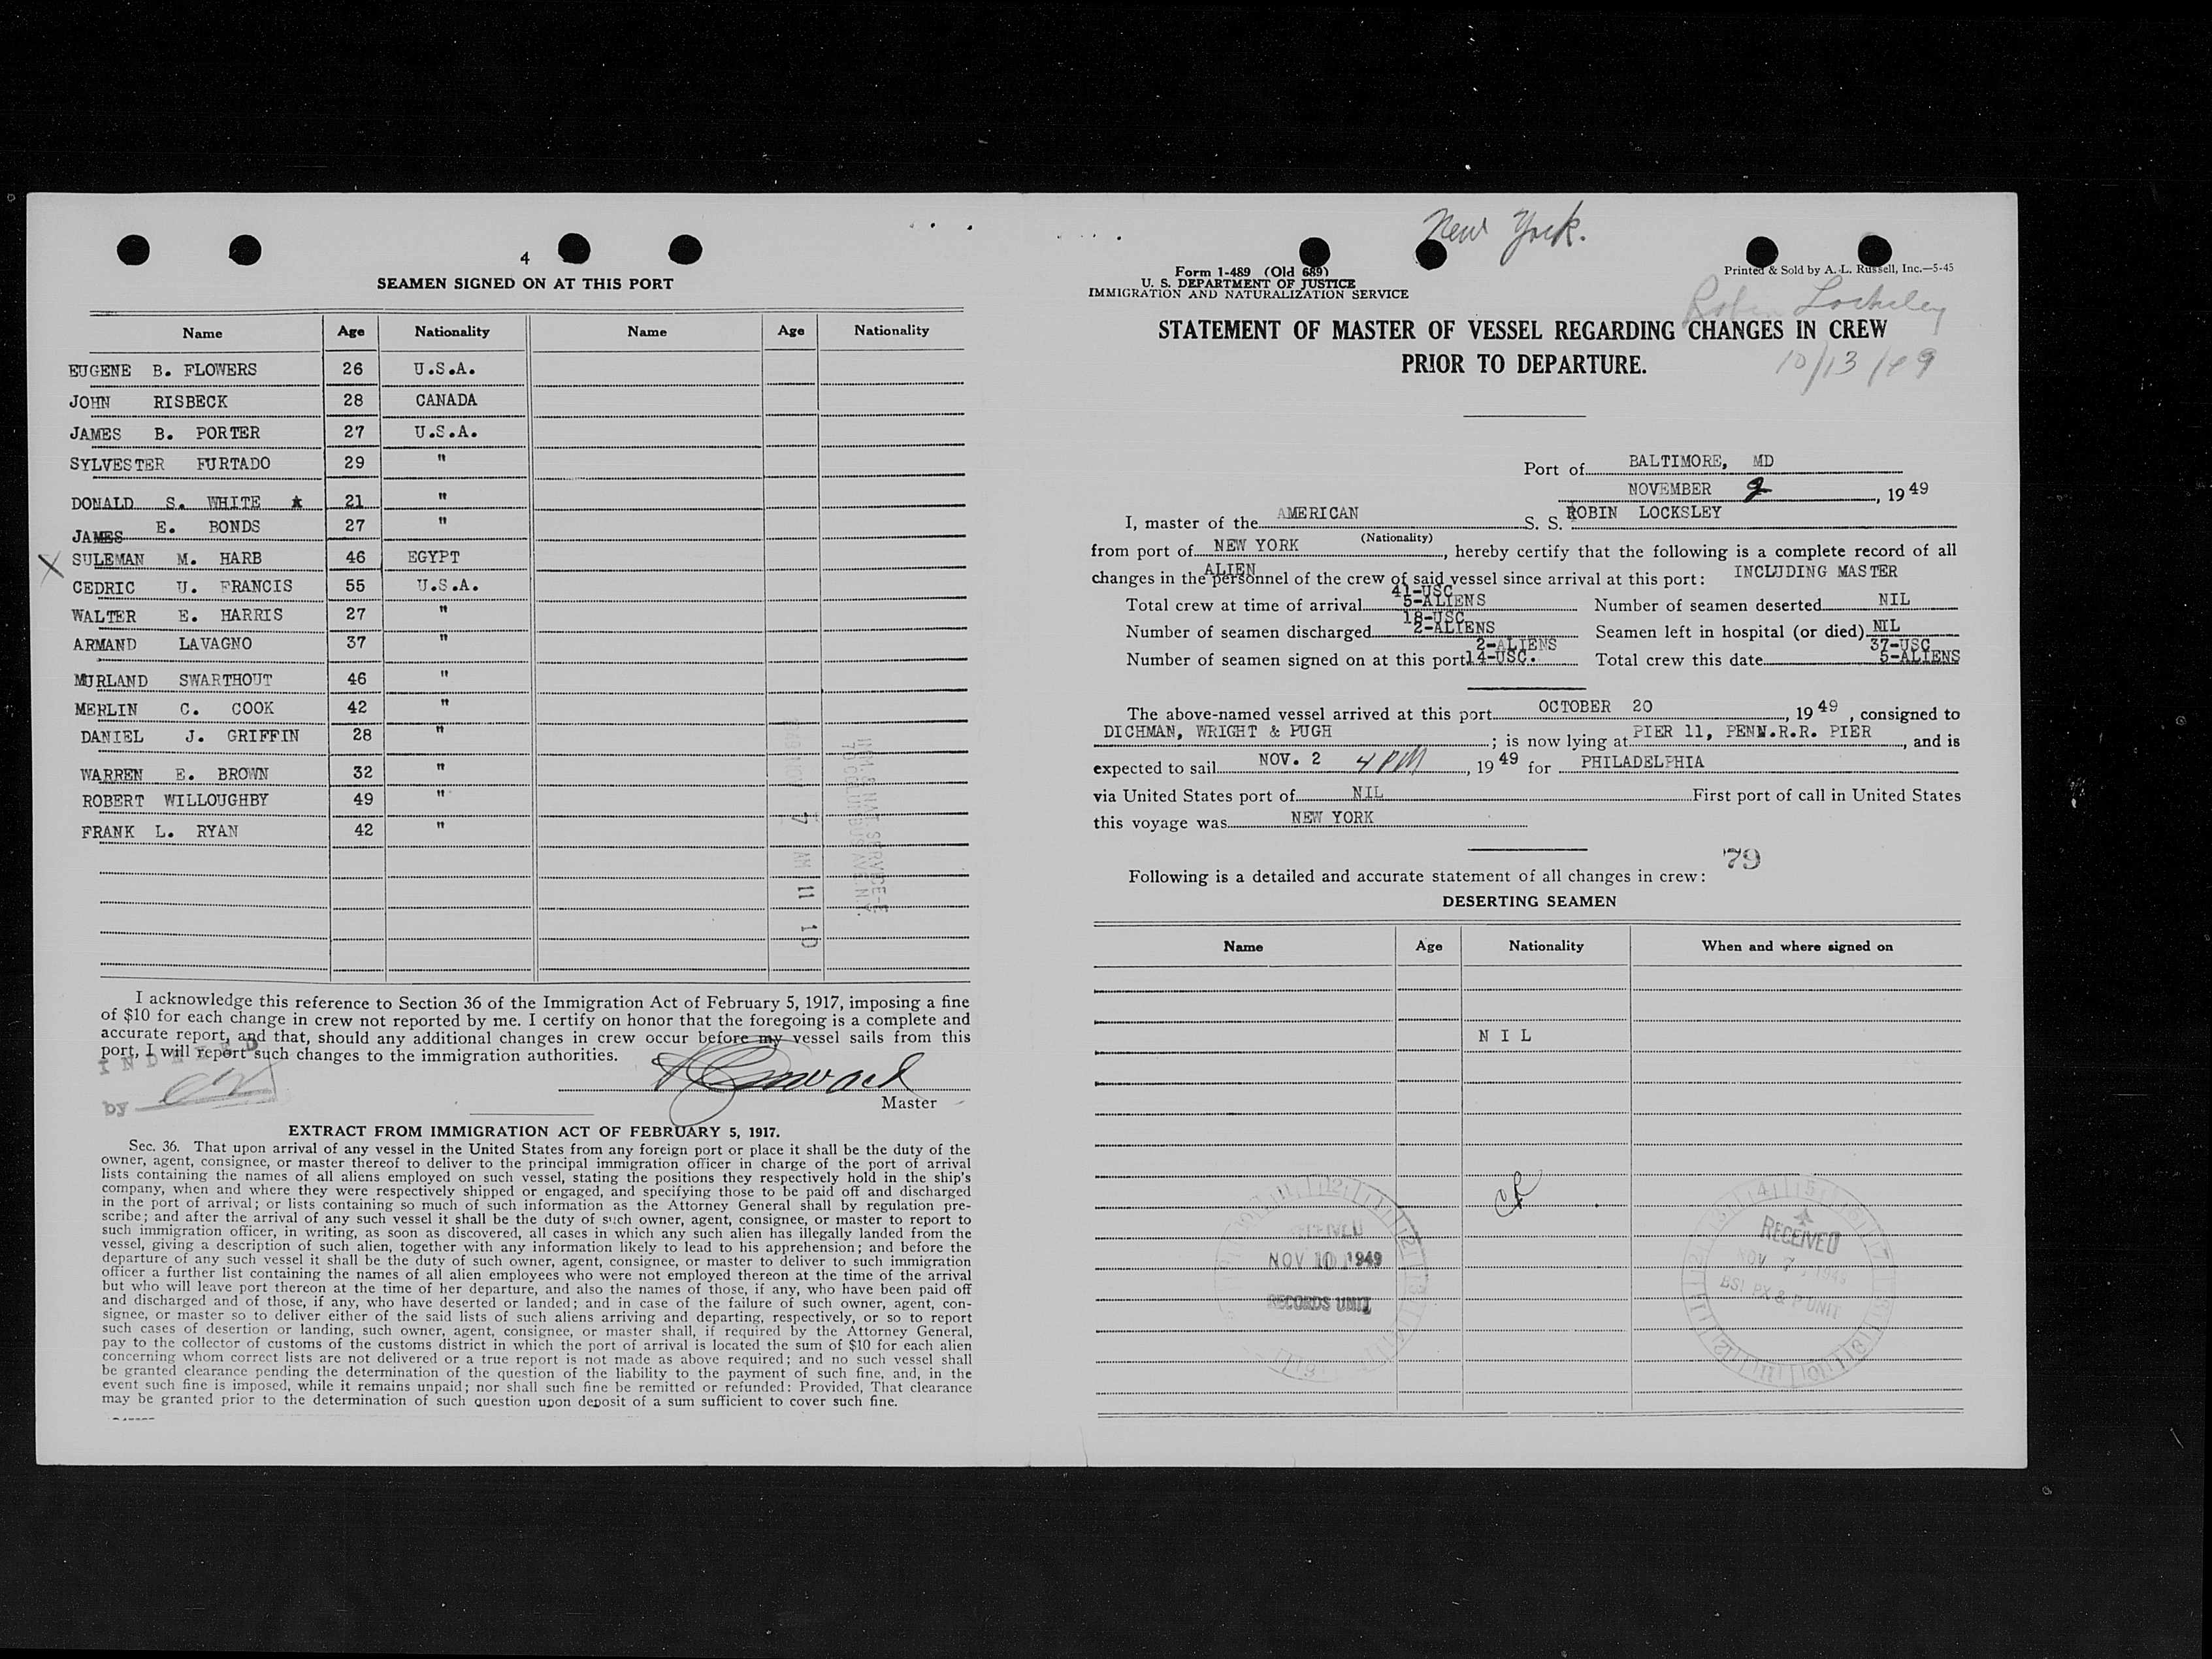 4
SEAMEN SIGNED ON AT THIS PORT
Name Age Nationality Name Age Nationality
EUGENE B. FLOWERS 26 U.S.A.
JOHN RISBECK 28 CANADA
JAMES B. PORTER 27 U.S.A.
SYLVESTER FURTADO 29 "
DONALD S. WHITE 21 "
JAMES E. BONDS 27 "
X SULEMAN M. HARB 46 EGYPT
CEDRIC U. FRANCIS 55 U.S.A.
WALTER E. HARRIS 27 "
ARMAND LAVAGNO 37 "
MURLAND SWARTHOUT 46 "
MERLIN C. COOK 42 "
DANIEL J. GRIFFIN 28 "
WARREN E. BROWN 32 "
ROBERT WILLOUGHBY 49 "
FRANK L. RYAN 42 "
7 AM 11 10
I acknowledge this reference to Section 36 of the Immigration Act of February 5, 1917, imposing a fine
of $10 for each change in crew not reported by me. I certify on honor that the foregoing is a complete and
accurate report, and that, should any additional changes in crew occur before my vessel sails from this
port, I will report such changes to the immigration authorities.
by
Master
EXTRACT FROM IMMIGRATION ACT OF FEBRUARY 5, 1917.
Sec. 36. That upon arrival of any vessel in the United States from any foreign port or place it shall be the duty of the
owner, agent, consignee, or master thereof to deliver to the principal immigration officer in charge of the port of arrival
lists containing the names of all aliens employed on such vessel, stating the positions they respectively hold in the ship's
company, when and where they were respectively shipped or engaged, and specifying those to be paid off and discharged
in the port of arrival; or lists containing so much of such information as the Attorney General shall by regulation pre-
scribe; and after the arrival of any such vessel it shall be the duty of such owner, agent, consignee, or master to report to
such immigration officer, in writing, as soon as discovered, all cases in which any such alien has illegally landed from the
vessel, giving a description of such alien, together with any information likely to lead to his apprehension; and before the
departure of any such vessel it shall be the duty of such owner, agent, consignee, or master to deliver to such immigration
officer a further list containing the names of all alien employees who were not employed thereon at the time of the arrival
but who will leave port thereon at the time of her departure, and also the names of those, if any, who have been paid off
and discharged and of those, if any, who have deserted or landed; and in case of the failure of such owner, agent, con-
signee, or master so to deliver either of the said lists of such aliens arriving and departing, respectively, or so to report
such cases of desertion or landing, such owner, agent, consignee, or master shall, if required by the Attorney General,
pay to the collector of customs of the customs district in which the port of arrival is located the sum of $10 for each alien
concerning whom correct lists are not delivered or a true report is not made as above required; and no such vessel shall
be granted clearance pending the determination of the question of the liability to the payment of such fine, and, in the
event such fine is imposed, while it remains unpaid; nor shall such fine be remitted or refunded: Provided, That clearance
may be granted prior to the determination of such question upon deposit of a sum sufficient to cover such fine.
New York.
Form 1-489 (Old 689)
U. S. DEPARTMENT OF JUSTICE
IMMIGRATION AND NATURALIZATION SERVICE
Printed & Sold by A. L. Russell, Inc.—5-45
Robin Locksley
10/13/49
STATEMENT OF MASTER OF VESSEL REGARDING CHANGES IN CREW
PRIOR TO DEPARTURE.
Port of BALTIMORE, MD
NOVEMBER 2, 1949
I, master of the AMERICAN S. S. ROBIN LOCKSLEY
(Nationality)
from port of NEW YORK, hereby certify that the following is a complete record of all
ALIEN
changes in the personnel of the crew of said vessel since arrival at this port: INCLUDING MASTER
41-USC
Total crew at time of arrival 5-ALIENS Number of seamen deserted NIL
18-USC
Number of seamen discharged 2-ALIENS Seamen left in hospital (or died) NIL
2-ALIENS 37-USC
Number of seamen signed on at this port 14-USC. Total crew this date 5-ALIENS
The above-named vessel arrived at this port OCTOBER 20, 1949, consigned to
DICHMAN, WRIGHT & PUGH; is now lying at PIER 11, PENN.R.R. PIER, and is
expected to sail NOV. 2 4 PM, 1949 for PHILADELPHIA
via United States port of NIL First port of call in United States
this voyage was NEW YORK
79
Following is a detailed and accurate statement of all changes in crew:
DESERTING SEAMEN
Name Age Nationality When and where signed on
N I L
RECEIVED
NOV 10 1949
RECORDS UNIT
RECEIVED
NOV 7 1949
BSI PX & P UNIT